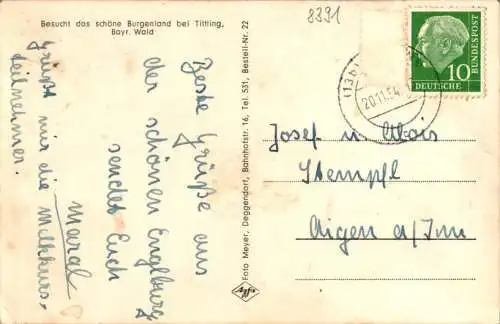 Besucht das schöne Burgenland bei Tittling,
Bayr. Wald
8391
DEUTSCHE
BUNDESPOST
10
(13b)
20.11.54
Beste Grüße aus
der schönen Englburg
sendet Euch
Maral
Grüßt mir die Melkkurs-
teilnehmer.
Foto Meyer, Deggendorf, Bahnhofstr. 16, Tel. 531, Bestell-Nr. 22
Agfa
Josef u. Alois
Stempfl
Aigen a/Inn